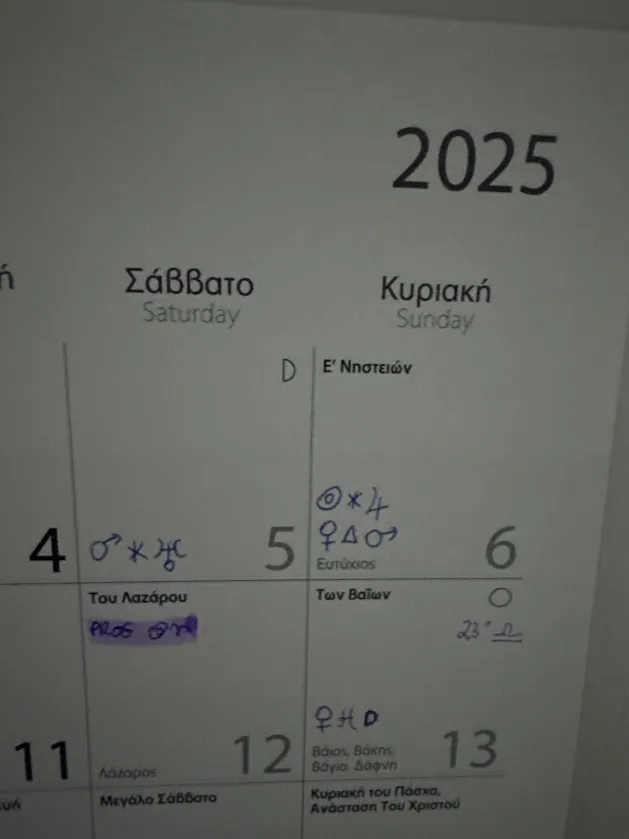 2025
ή
Σάββατο
Saturday
Κυριακή
Sunday
D
Ε' Νηστειών
☉⚹♃
♀△♂
4
♂⚹♅
5
Ευτύχιος
6
Του Λαζάρου
Των Βαΐων
PROG ☉
23° ♎
♀♓D
11
Λάζαρος
12
Βάιος, Βάκης,
Βάγια, Δάφνη
13
Μεγάλο Σάββατο
Κυριακή του Πάσχα,
Ανάσταση Του Χριστού